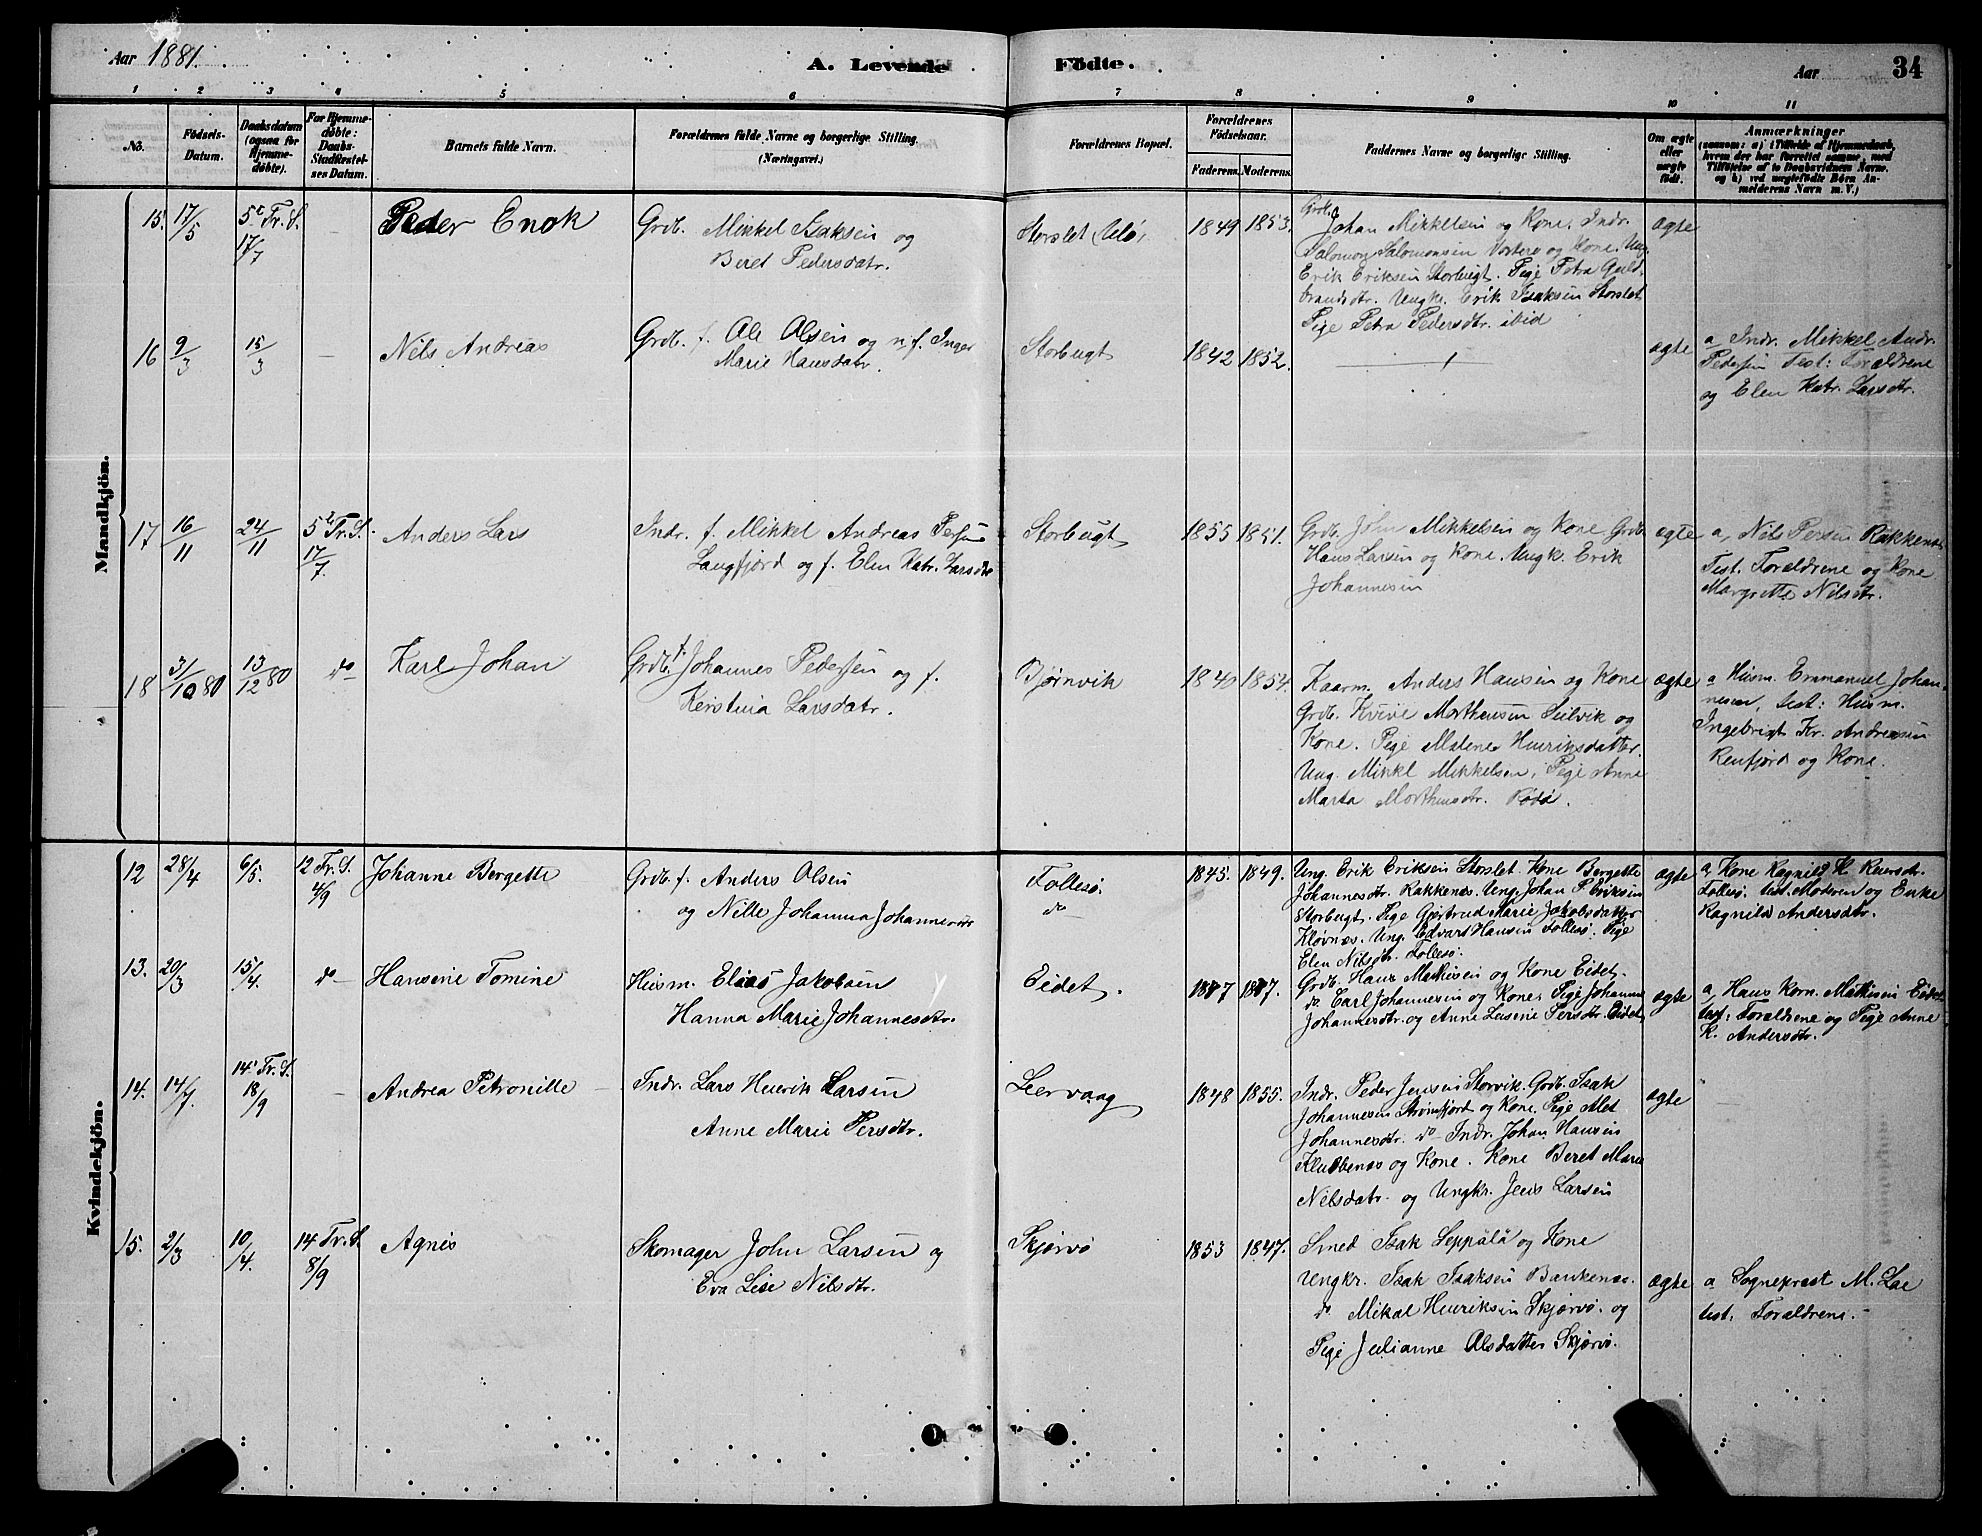 Aar 1881.
A. Levende Födte.
Aar
34
1 2 3 4 5 6 7 8 9 10 11
No.
Födsels-Datum.
Daabsdatum (ogsaa for Hjemmedøbte).
For Hjemmedøbte: Daabs-Stadfæstelses Datum.
Barnets fulde Navn.
Forældrenes fulde Navne og borgerlige Stilling. (Næringsvei.)
Forældrenes Bopæl.
Forældrenes Födselsaar.
Faderens. Moderens.
Faddernes Navne og borgerlige Stilling.
Om ægte eller uægte födt.
Anmærkninger
Mandkjön.
15. 17/5 5te Tr. S. 17/7 – Peder Enok
Grdb. Mikkel Isaksen og
Beret Pedersdatr.
Storslet 1849 1853.
Grdb. Johan Mikkelsen og Kone. Indr.
Salomon Salomonsen Vorterø og Kone. Ung.
Erik Eriksen Storbugt. Pige Petra Guld-
brandsdtr. Ungk. Erik Isaksen Storslet
Pige Petra Pedersdtr. ibid
ægte
16 9/3 15/3 – Nils Andreas
Grdb. f. Ole Olsen og n.f. Inger
Marie Hansdatr.
Storbugt 1842 1852.
ægte
a, Indr. Mikkel Andr.
Pedersen Test: Forældrene
og Elen Katr. Larsdtr.
17 16/11 24/11 5te Tr. S. 17/7. Anders Lars
Indr. f. Mikkel Andreas Persen
Langfjord og f. Elen Katr. Larsdtr
Storbugt 1855 1851.
Grdb. John Mikkelsen og Kone Grdb.
Hans Larsen og Kone. Ungk. Erik
Johannesen
ægte
a, Nils Persen Rakkenes
Test. Forældrene og Kone
Margrethe Nilsdtr.
18 31/10 80 13/12 80 do Karl Johan
Grdb. f. Johannes Pedersen og f.
Kerstina Larsdatr.
Bjørnvik 1840 1854.
Kaarm. Anders Hansen og Kone
Grdb. Morthensen og
Kone. Pige Malene Henriksdatter.
Ung. Mikkl Mikkelsen, Pige Anne
Marta Morthensdtr.
ægte
a Husm. Emmanuel Johan-
nesen, test: Husm.
Ingebrigt Kr. Andreasen
Reinfjord og Kone.
Kvindekjön.
12 28/4 6/5. 12 Tr. S. 4/9 Johanne Bergette
Grdb. f. Anders Olsen
og Nille Johanna Johannesdtr
Follesø. do 1845. 1849.
Ung. Erik Eriksen Storslet. Kone Bergette
Johannesdtr. Rakkenæs. Ung. Johan P. Eriksen
Storbugt. Pige Gjertrud Marie Jakobsdatter
Kløvnæs. Ung. Edvart Hansen Follesø. Pige
Elen Nilsdtr. Follesø.
ægte
a, Kone Ragnild K.
Follesø. test. Moderen og Enke
Ragnild Andersdtr.
13. 20/3 15/4. do Hansine Tomine
Husm. Elias Jakobsen
Hanna Marie Johannesdtr.
Eidet.
Grdb. Hans Mathisen og Kone Eidet.
do Carl Johannesen og Kone. Pige Johanna
Johannesdtr. og Anne Lusine Persdtr. Eidet
ægte
a, Hans Korn. Mathisen Eidet
test: Forældrene og Pige Anne
K. Andersdtr.
14. 14/7. 14 Tr. S. 18/9 – Andrea Petronille –
Indr. Lars Henrik Larsen
Anne Marie Persdtr.
Leervaag 1848 1855.
Indr. Peder Jensen Storvik. Grdb. Isak
Johannesen Strømfjord og Kone. Pige Met
Johannesdtr. do – Indr. Johan Hansen
Klubbenæs og Kone. Kone Beret Marie
Nilsdatr. og Ungkr. Jens Larsen
ægte
15. 2/3 10/4. 14 Tr. S. 8/9 Agnes
Skomager John Larsen og
Eva Lise Nilsdtr.
Skjervø 1853 1847.
Smed Isak Seppälä og Kone
Ungkr. Isak Isaksen Baukenæs.
do Mikal Henriksen Skjervø. og
Pige Julianne Olsdatter Skjervø.
ægte
a Sognepræst M. Lae
test. Forældrene. –